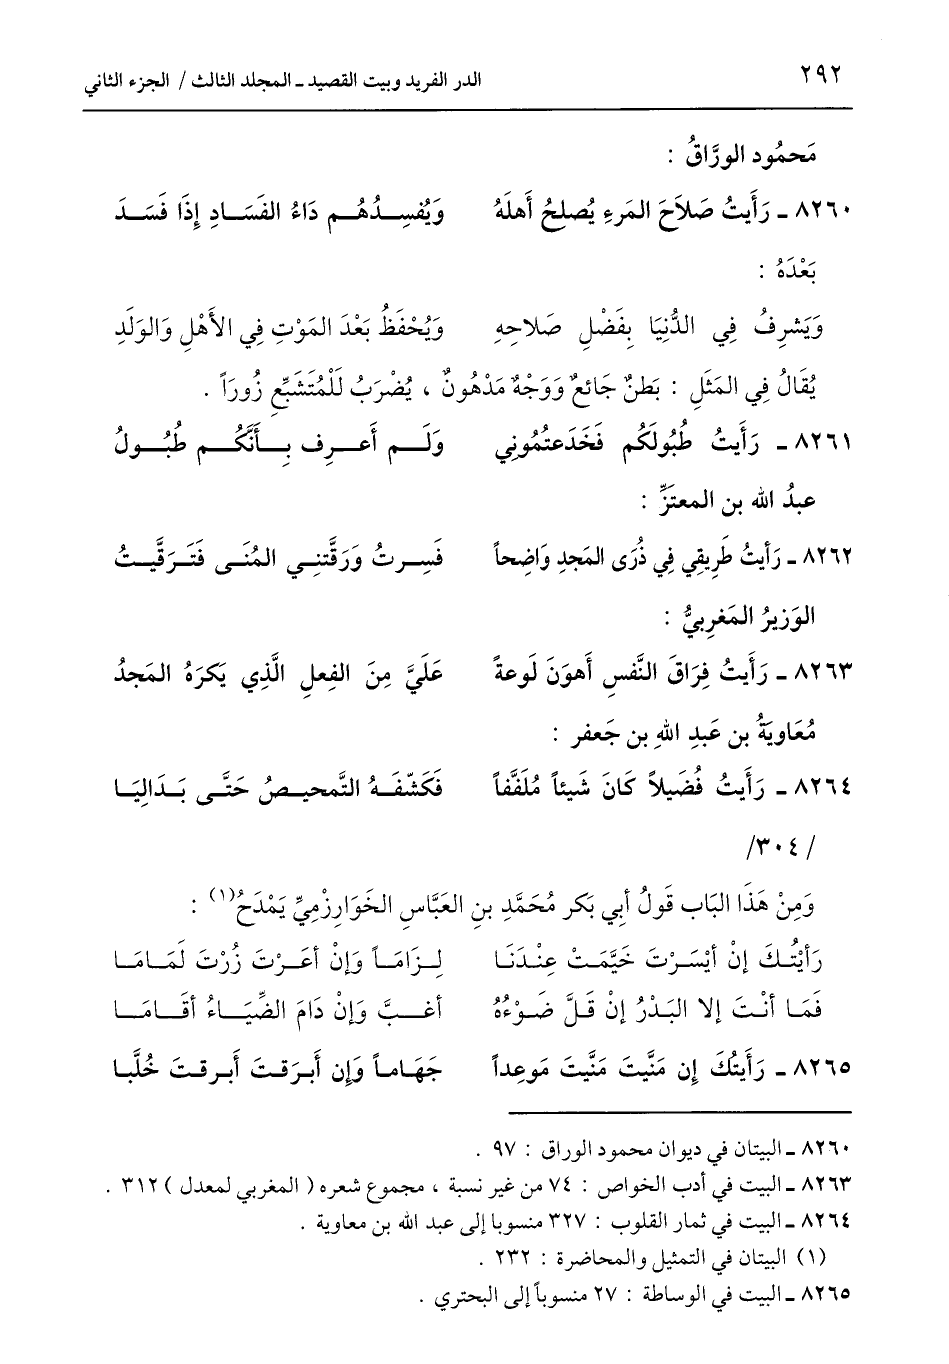 ٢٩٢ الدر الفريد وبيت القصيد ـ المجلد الثالث / الجزء الثاني
مَحمُود الورَّاقُ :
٨٢٦٠ ـ رَأَيتُ صَلاَحَ المَرءِ يُصلحُ أَهلَهُ وَيُفسِـدُهُـم دَاءُ الفَسَـادِ إِذَا فَسَـدَ
بَعْدَهُ :
وَيَشرِفُ فِي الدُّنيَا بِفَضْلِ صَلاحِهِ وَيُحْفَظُ بَعْدَ المَوْتِ فِي الأَهْلِ وَالوَلَدِ
يُقَالُ فِي المَثَلِ : بَطنٌ جَائعٌ وَوَجْهٌ مَدْهُونٌ ، يُضْرَبُ لَلْمُتَشَبِّعِ زُورَاً .
٨٢٦١ ـ رَأَيتُ طُبُولَكُم فَخَدَعتُمُونِي وَلَـم أَعـرِف بِـأَنَّكُـم طُبُـولُ
عبدُ الله بن المعتَزِّ :
٨٢٦٢ ـ رَأيتُ طَرِيقِي فِي ذُرَى المَجدِ وَاضِحاً فَسِـرتُ وَرَقَّتنِـي المُنَـى فَتَـرَقَّيـتُ
الوَزيرُ المَغرِبيُّ :
٨٢٦٣ ـ رَأَيتُ فِرَاقَ النَّفسِ أَهوَنَ لَوعةً عَلَيَّ مِنَ الفِعلِ الَّذِي يَكرَهُ المَجدُ
مُعَاوِيَةُ بن عَبدِ اللهِ بن جَعفر :
٨٢٦٤ ـ رَأَيتُ فُضَيلاً كَانَ شَيئاً مُلَفَّفاً فَكَشّفَـهُ التَّمحيـصُ حَتَّـى بَـدَالِيَـا
/ ٣٠٤/
وَمِنْ هَذَا البَاب قَولُ أبي بَكر مُحَمَّدِ بنِ العَبَّاسِ الخَوَارِزْمِيِّ يَمْدَحُ(١) :
رَأَيْتُـكَ إنْ أيْسَـرْتَ خَيَّمَـتْ عِنْـدَنَـا لِـزَامَـاً وَإنْ أعَـرْتَ زُرْتَ لَمَـامَـا
فَمَـا أنْـتَ إلا البَـدْرُ إنْ قَـلَّ ضَـوْءُهُ أغَـبَّ وَإنْ دَامَ الضِّيَـاءُ أقَـامَـا
٨٢٦٥ ـ رَأَيتُكَ إن مَنَّيتَ مَنَّيتَ مَوعِداً جَهَـامـاً وَإن أَبـرَقـتَ أَبـرقـتَ خُلَّبـا
٨٢٦٠ ـ البيتان في ديوان محمود الوراق : ٩٧ .
٨٢٦٣ ـ البيت في أدب الخواص : ٧٤ من غير نسبة ، مجموع شعره ( المغربي لمعدل ) ٣١٢ .
٨٢٦٤ ـ البيت في ثمار القلوب : ٣٢٧ منسوبا إلى عبد الله بن معاوية .
(١) البيتان في التمثيل والمحاضرة : ٢٣٢ .
٨٢٦٥ ـ البيت في الوساطة : ٢٧ منسوباً إلى البحتري .